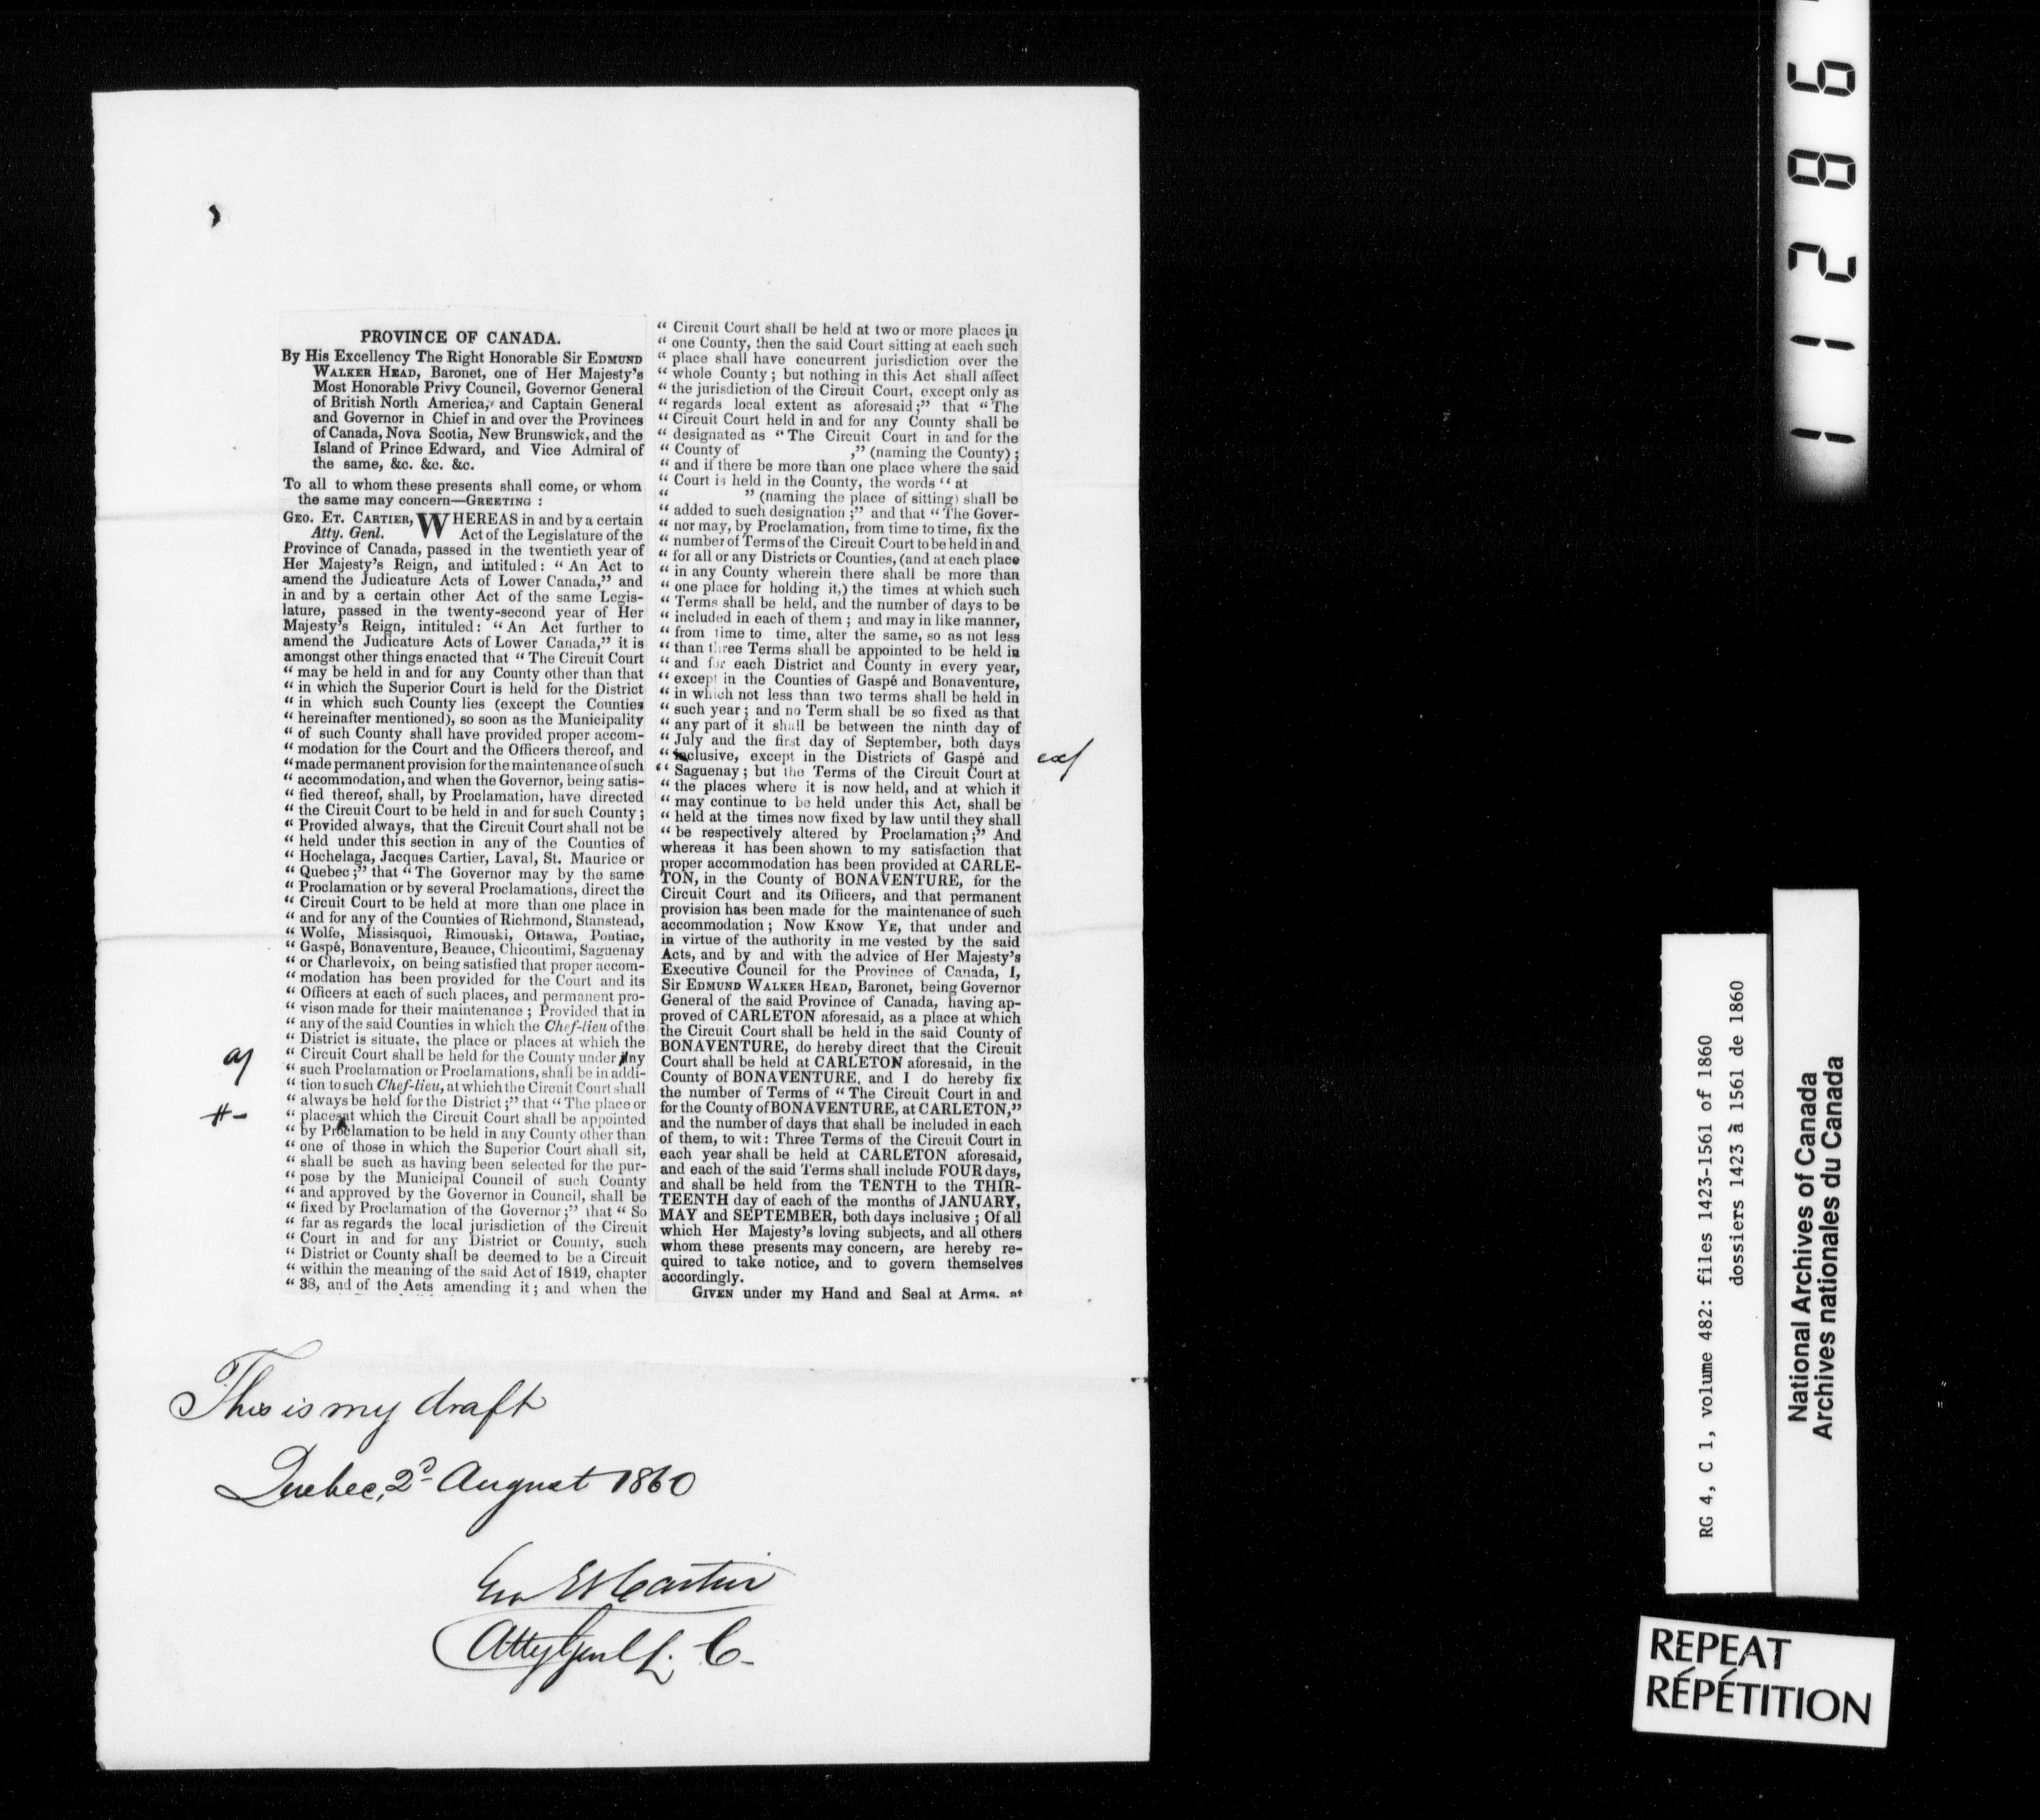 PROVINCE OF CANADA.
By His Excellency The Right Honorable Sir EDMUND
WALKER HEAD, Baronet, one of Her Majesty's
Most Honorable Privy Council, Governor General
of British North America, and Captain General
and Governor in Chief in and over the Provinces
of Canada, Nova Scotia, New Brunswick, and the
Island of Prince Edward, and Vice Admiral of
the same, &c. &c. &c.
To all to whom these presents shall come, or whom
the same may concern—GREETING :
GEO. ET. CARTIER, WHEREAS in and by a certain
Atty. Genl. Act of the Legislature of the
Province of Canada, passed in the twentieth year of
Her Majesty's Reign, and intituled: “ An Act to
amend the Judicature Acts of Lower Canada,” and
in and by a certain other Act of the same Legis-
lature, passed in the twenty-second year of Her
Majesty's Reign, intituled: “ An Act further to
amend the Judicature Acts of Lower Canada,” it is
amongst other things enacted that “ The Circuit Court
“ may be held in and for any County other than that
“ in which the Superior Court is held for the District
“ in which such County lies (except the Counties
“ hereinafter mentioned), so soon as the Municipality
“ of such County shall have provided proper accom-
“ modation for the Court and the Officers thereof, and
“ made permanent provision for the maintenance of such
“ accommodation, and when the Governor, being satis-
“ fied thereof, shall, by Proclamation, have directed
“ the Circuit Court to be held in and for such County ;
“ Provided always, that the Circuit Court shall not be
“ held under this section in any of the Counties of
“ Hochelaga, Jacques Cartier, Laval, St. Maurice or
“ Quebec ;” that “ The Governor may by the same
“ Proclamation or by several Proclamations, direct the
“ Circuit Court to be held at more than one place in
“ and for any of the Counties of Richmond, Stanstead,
“ Wolfe, Missisquoi, Rimouski, Ottawa, Pontiac,
“ Gaspé, Bonaventure, Beauce, Chicoutimi, Saguenay
“ or Charlevoix, on being satisfied that proper accom-
“ modation has been provided for the Court and its
“ Officers at each of such places, and permanent pro-
“ vison made for their maintenance ; Provided that in
“ any of the said Counties in which the Chef-lieu of the
“ District is situate, the place or places at which the
a/ “ Circuit Court shall be held for the County under any
“ such Proclamation or Proclamations, shall be in addi-
“ tion to such Chef-lieu, at which the Circuit Court shall
“ always be held for the District ;” that “ The place or
# “ places at which the Circuit Court shall be appointed
“ by Proclamation to be held in any County other than
“ one of those in which the Superior Court shall sit,
“ shall be such as having been selected for the pur-
“ pose by the Municipal Council of such County
“ and approved by the Governor in Council, shall be
“ fixed by Proclamation of the Governor ;” that “ So
“ far as regards the local jurisdiction of the Circuit
“ Court in and for any District or County, such
“ District or County shall be deemed to be a Circuit
“ within the meaning of the said Act of 1849, chapter
“ 38, and of the Acts amending it ; and when the
“ Circuit Court shall be held at two or more places in
“ one County, then the said Court sitting at each such
“ place shall have concurrent jurisdiction over the
“ whole County ; but nothing in this Act shall affect
“ the jurisdiction of the Circuit Court, except only as
“ regards local extent as aforesaid ;” that “ The
“ Circuit Court held in and for any County shall be
“ designated as “ The Circuit Court in and for the
“ County of ,” (naming the County) ;
“ and if there be more than one place where the said
“ Court is held in the County, the words “ at
“ ” (naming the place of sitting) shall be
“ added to such designation ;” and that “ The Gover-
“ nor may, by Proclamation, from time to time, fix the
“ number of Terms of the Circuit Court to be held in and
“ for all or any Districts or Counties, (and at each place
“ in any County wherein there shall be more than
“ one place for holding it,) the times at which such
“ Terms shall be held, and the number of days to be
“ included in each of them ; and may in like manner,
“ from time to time, alter the same, so as not less
“ than three Terms shall be appointed to be held in
“ and for each District and County in every year,
“ except in the Counties of Gaspé and Bonaventure,
“ in which not less than two terms shall be held in
“ such year ; and no Term shall be so fixed as that
“ any part of it shall be between the ninth day of
“ July and the first day of September, both days
“ inclusive, except in the Districts of Gaspé and
“ Saguenay ; but the Terms of the Circuit Court at
“ the places where it is now held, and at which it
“ may continue to be held under this Act, shall be
“ held at the times now fixed by law until they shall
“ be respectively altered by Proclamation ;” And
whereas it has been shown to my satisfaction that
proper accommodation has been provided at CARLE-
TON, in the County of BONAVENTURE, for the
Circuit Court and its Officers, and that permanent
provision has been made for the maintenance of such
accommodation ; NOW KNOW YE, that under and
in virtue of the authority in me vested by the said
Acts, and by and with the advice of Her Majesty's
Executive Council for the Province of Canada, I,
Sir EDMUND WALKER HEAD, Baronet, being Governor
General of the said Province of Canada, having ap-
proved of CARLETON aforesaid, as a place at which
the Circuit Court shall be held in the said County of
BONAVENTURE, do hereby direct that the Circuit
Court shall be held at CARLETON aforesaid, in the
County of BONAVENTURE, and I do hereby fix
the number of Terms of “ The Circuit Court in and
for the County of BONAVENTURE, at CARLETON,”
and the number of days that shall be included in each
of them, to wit : Three Terms of the Circuit Court in
each year shall be held at CARLETON aforesaid,
and each of the said Terms shall include FOUR days,
and shall be held from the TENTH to the THIR-
TEENTH day of each of the months of JANUARY,
MAY and SEPTEMBER, both days inclusive ; Of all
which Her Majesty's loving subjects, and all others
whom these presents may concern, are hereby re-
quired to take notice, and to govern themselves
accordingly.
GIVEN under my Hand and Seal at Arms, at
This is my draft
Quebec, 2d August 1860
Geo Et Cartier
Atty Genl L. C.
11286
RG 4, C 1, volume 482: files 1423-1561 of 1860
dossiers 1423 à 1561 de 1860
National Archives of Canada
Archives nationales du Canada
REPEAT
RÉPÉTITION